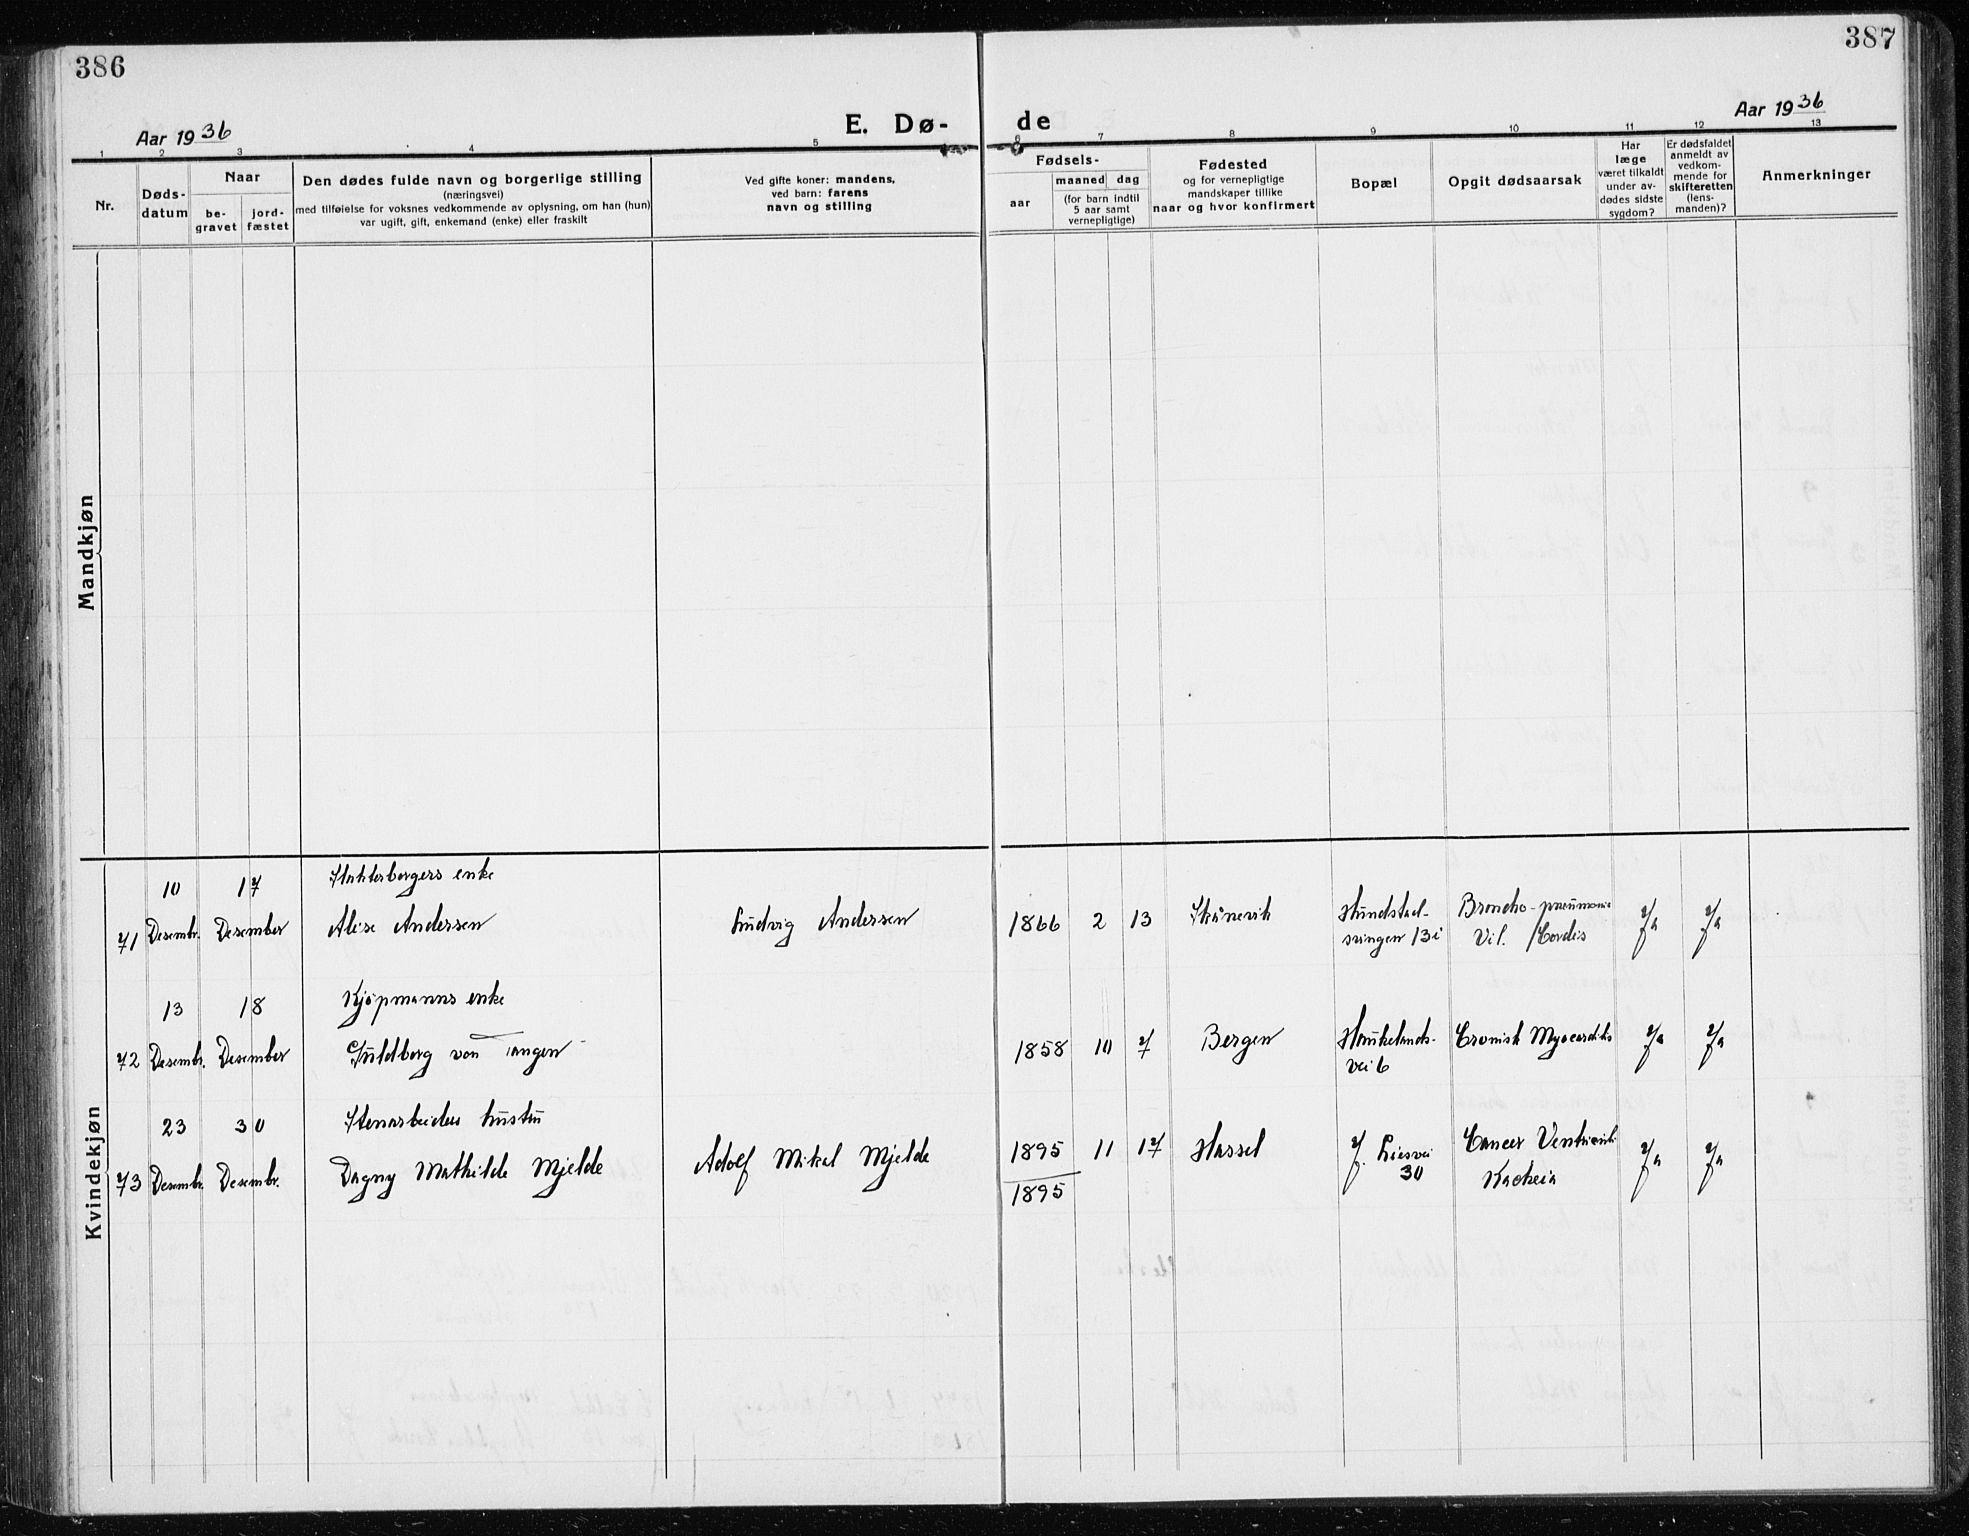 386
387
Aar 1936
E. Dø-
de
Aar 1936
1 2 3 4 5 6 7 8 9 10 11 12 13
Nr.
Døds-
datum
Naar
be-
gravet
jord-
fæstet
Den dødes fulde navn og borgerlige stilling
(næringsvei)
med tilføielse for voksnes vedkommende av oplysning, om han (hun)
var ugift, gift, enkemand (enke) eller fraskilt
Ved gifte koner: mandens,
ved barn: farens
navn og stilling
Fødsels-
aar
maaned
dag
(for barn indtil
5 aar samt
vernepligtige)
Fødested
og for vernepligtige
mandskaper tillike
naar og hvor konfirmert
Bopæl
Opgit dødsaarsak
Har
læge
været tilkaldt
under av-
dødes sidste
sygdom?
Er dødsfaldet
anmeldt av
vedkom-
mende for
skifteretten
(lens-
manden)?
Anmerkninger
Mandkjøn
Kvindekjøn
10 17 enke
71 Desembr. Desember Alise Andersen Ludvig Andersen 1866 2 13 Skånevik
Broncho-pneumonie
svingen 13i
Vit. Cordis
Ja Ja
13 18 Kjøpmanns enke
72 Desembr. Desember von Tangen 1858 10 7 Bergen Haukelands-
vei 6
Cronisk Myocarditis Ja Ja
23 30 Stenarbeiders hustru
73 Desembr. Desembr. Dagny Mathilde Mjelde Adolf Mikal Mjelde 1895 11 17 Hassel
1895
J. Liesvei
30
Cancer Ventriculi
Kachexia
Ja Ja